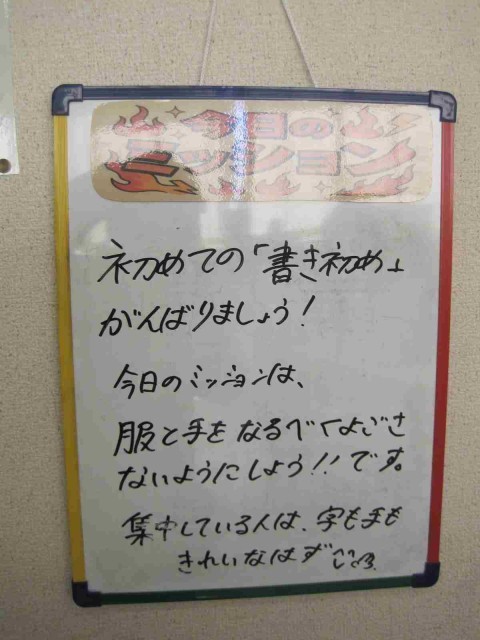 今日の
ミッション
初めての「書き初め」
がんばりましょう！
今日のミッションは、
服と手をなるべくよごさ
ないようにしよう!!です。
集中している人は、字も手も
きれいなはず